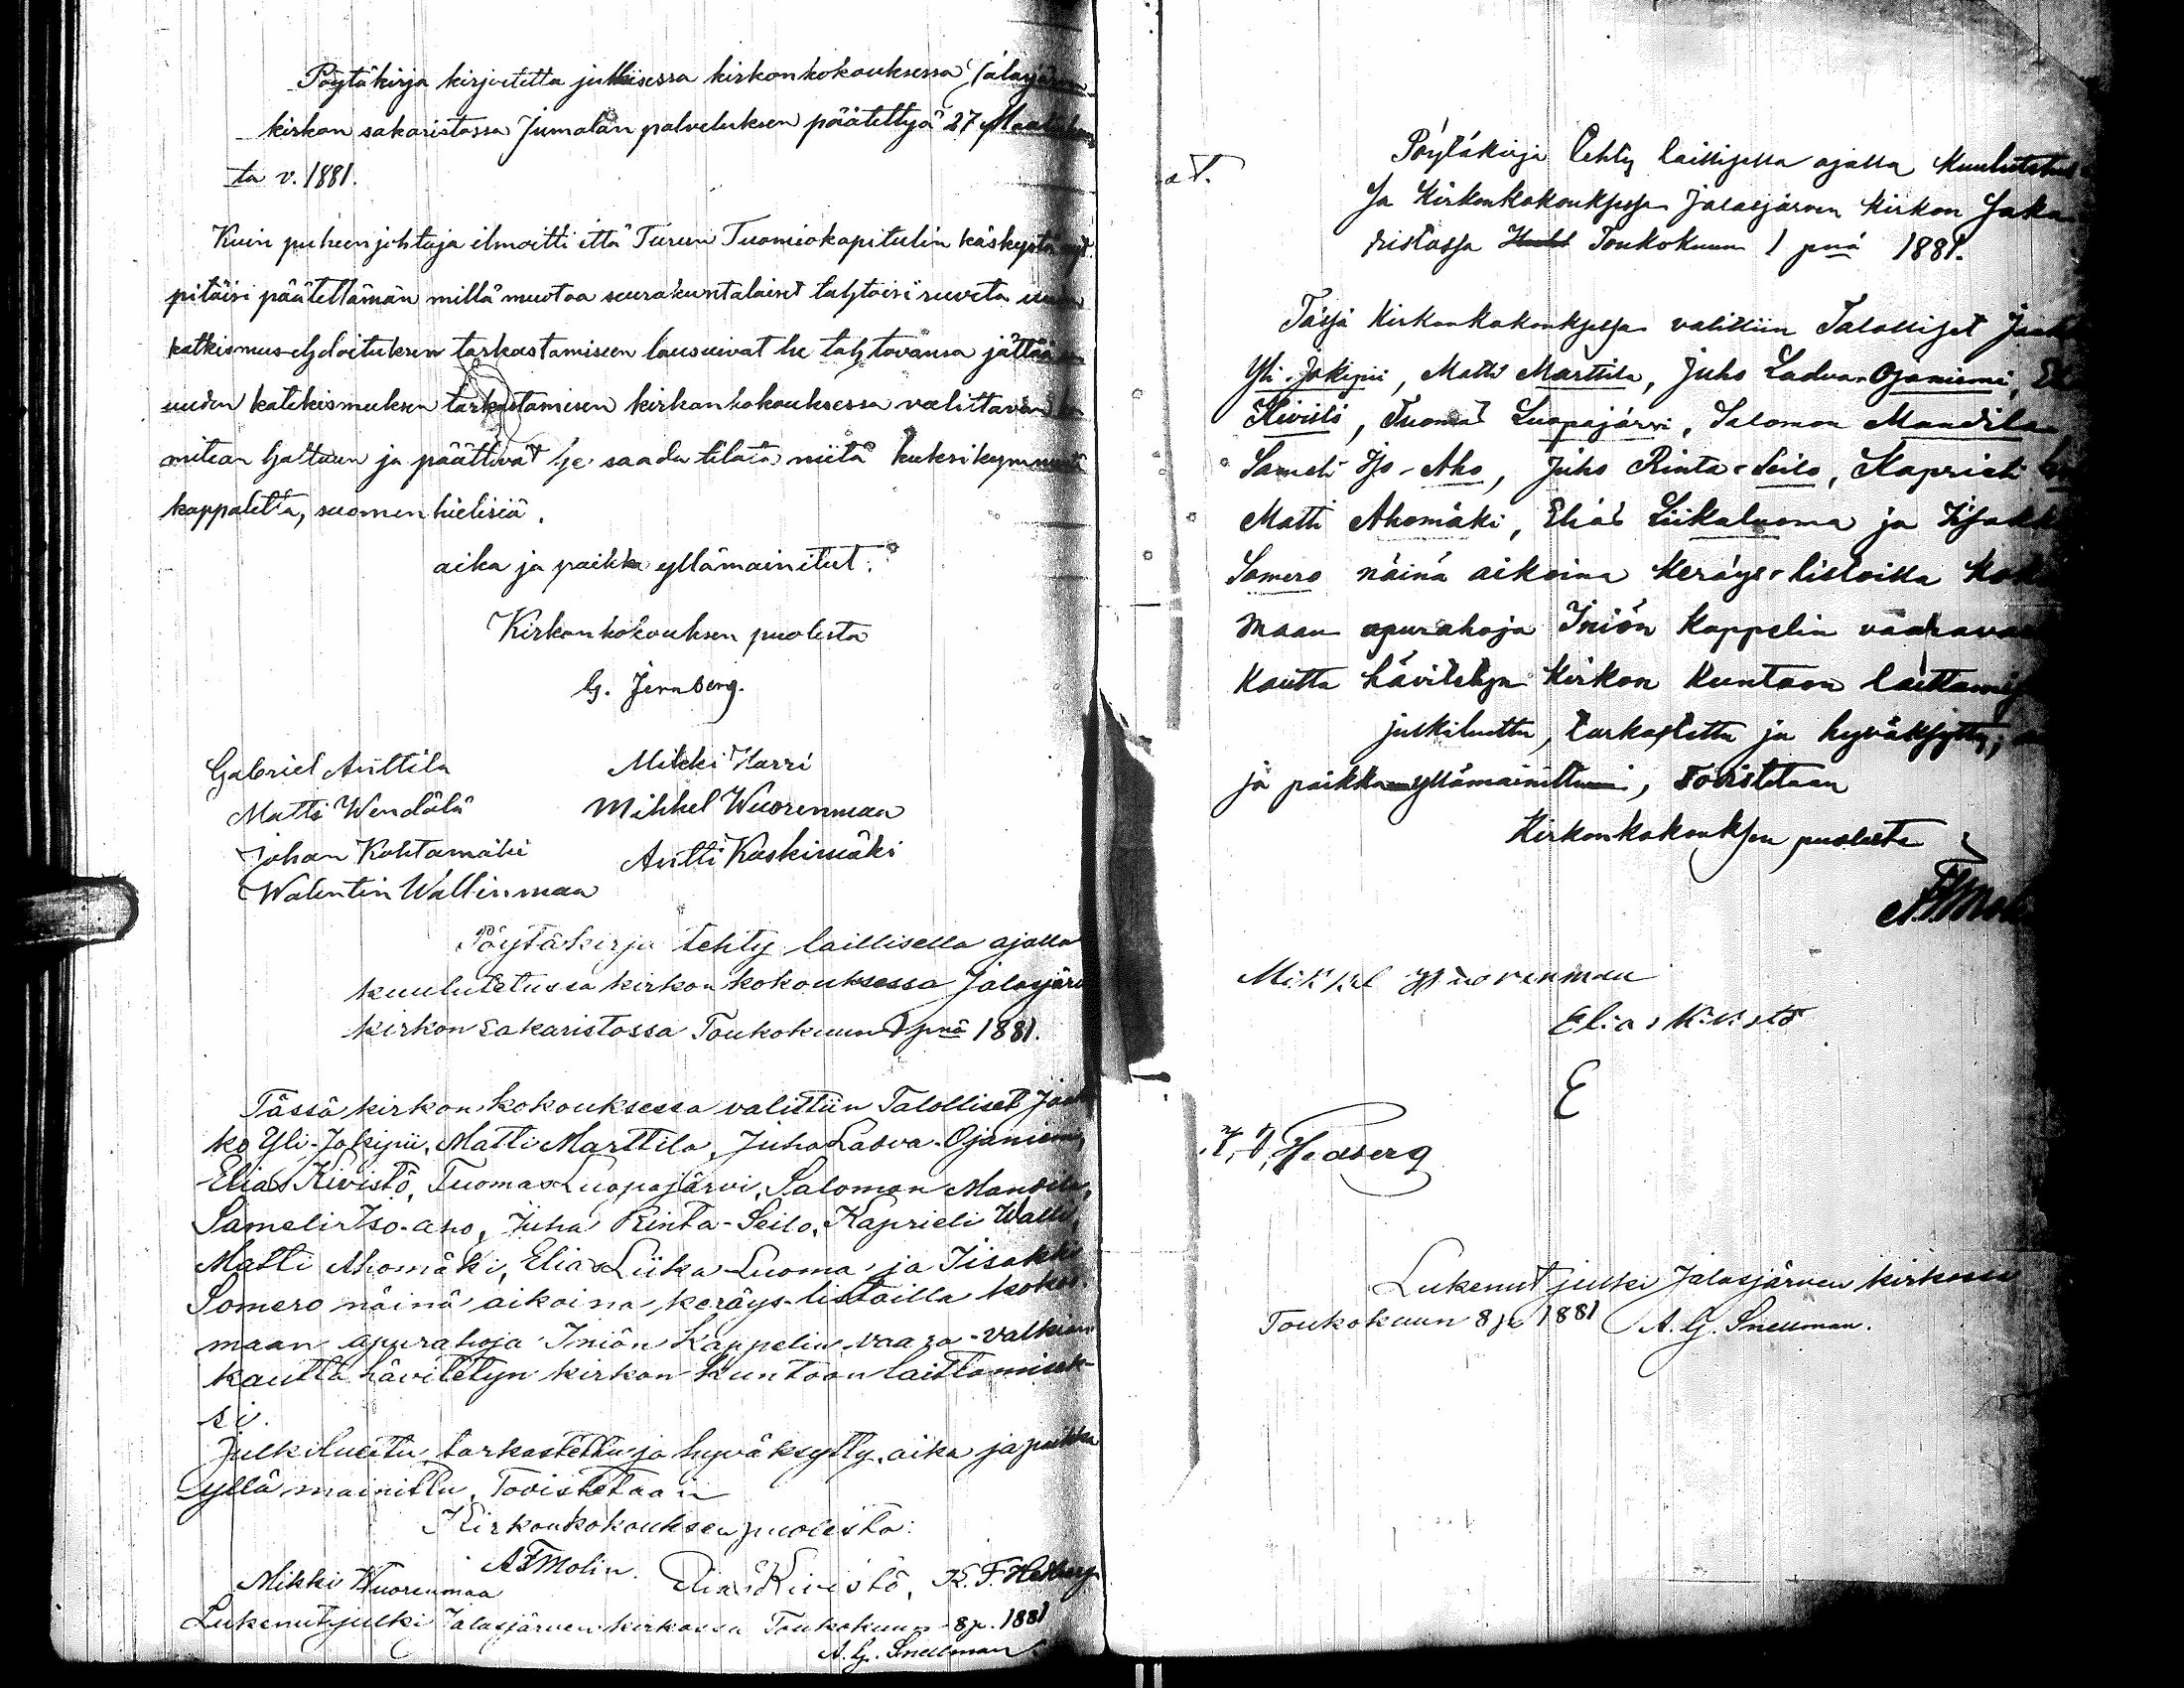 Pöytäkirja kirjoitettu julkisessa kirkonkokouksessa Jalasjärven
kirkon sakaristossa Jumalan palveluksen päätettyä 27 Maalis
ta v. 1881.
Kuin puheenjohtaja ilmoitti että Turun Tuomiokapitulin käskystä nyt
pitäisi päätettämän millä muotoa seurakuntalaiset tahtoisi ruveta uuden
katkismus-ehdoituksen tarkastamiseen lausuivat he tahtovansa jättää
uuden katekismuksen tarkastamisen kirkonkokouksessa valittavan ko
mitean haltuun ja päättivät he saada tilata niitä kaksikymmentä
kappaletta, suomenkielisiä.
aika ja paikka yllämainitut.
Kirkonkokouksen puolesta
G. Jernberg.
Gabriel Anttila Mikki Harri
Matti Wendälä Mikkel Wuorenmaa
Johan Kohtamäki Antti Koskimäki
Walentin Wallinmaa
Pöytäkirja tehty laillisella ajalla
kuulutetussa kirkonkokouksessa Jalasjärv
kirkon sakaristossa Toukokuun 1 pnä 1881.
Tässä kirkonkokouksessa valittiin Talolliset Jaak
ko Yli-Jokipii, Matti Marttila, Juha Ladva-Ojaniemi,
Elias Kivistö, Tuomas Luopajärvi, Salomon Mandila,
Sameli Iso-aho, Juha Rinta-Seilo, Kaprieli Walli,
Matti Ahomäki, Elias Liika-Luoma ja Iisakki
Somero näinä aikoina keräys-listoilla kokoo-
maan apurahoja Iniön Kappelin vaara-valkian
kautta hävitetyn kirkon kuntoon laittamisek-
si.
Julkiluettu, tarkastettu ja hyväksytty, aika ja paikka
yllä mainittu, Todistetaan
Kirkonkokouksen puolesta:
A F Molin.
Mikki Wuorenmaa Elias Kivistö, K. F. Hedberg
Lukenut julki Jalasjärven kirkossa Toukokuun 8 p. 1881
A. G. Snellman.
Pöytäkirja tehty laillisella ajalla kuulutetus
sa Kirkonkokouksessa Jalasjärven Kirkon Saka
ristossa Toukokuun 1 pnä 1881.
Tässä Kirkonkokouksessa valittiin Talolliset Jaak
Yli-Jokipii, Matti Marttila, Juho Ladva-Ojaniemi, El
Kivistö, Tuomas Luopajärvi, Salomon Mandila
Sameli Iso-Aho, Juho Rinta-Seilo, Kaprieli
Matti Ahomäki, Elias Liikaluoma ja Iisakk
Somero näinä aikoina keräys-listoilla koko
maan apurahoja Iniön Kappelin vaarava
kautta hävitetyn Kirkon kuntoon laittamis
julkiluettu, tarkastettu ja hyväksytty,
ja paikka yllämainittu, todistetaan
Kirkonkokouksen puolesta
A F Mol
Mikkel Wuorenmaa
Elias Kivistö
E
K. F. Hedberg
Lukenut julki Jalasjärven kirkossa
Toukokuun 8 p. 1881 A. G. Snellman.